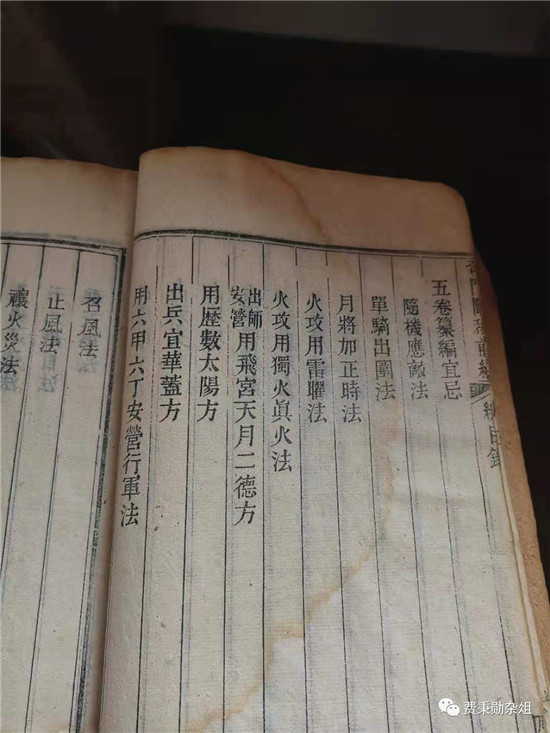 前編 目錄
五卷纂編宜忌
隨機應敵法
單騎出圍法
月將加正時法
火攻用雷曜法
火攻用獨火眞火法
出師安營用飛宮天月二德方
用歴數太陽方
出兵宜華蓋方
用六甲六丁安營行軍法
召風法
止風法
禳火災法
费秉勋杂俎